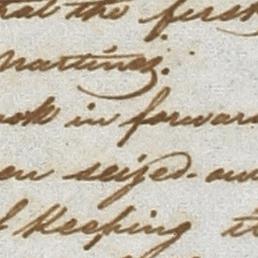 that the first
Martinez.
ook in forward
en seized and
f Keeping th